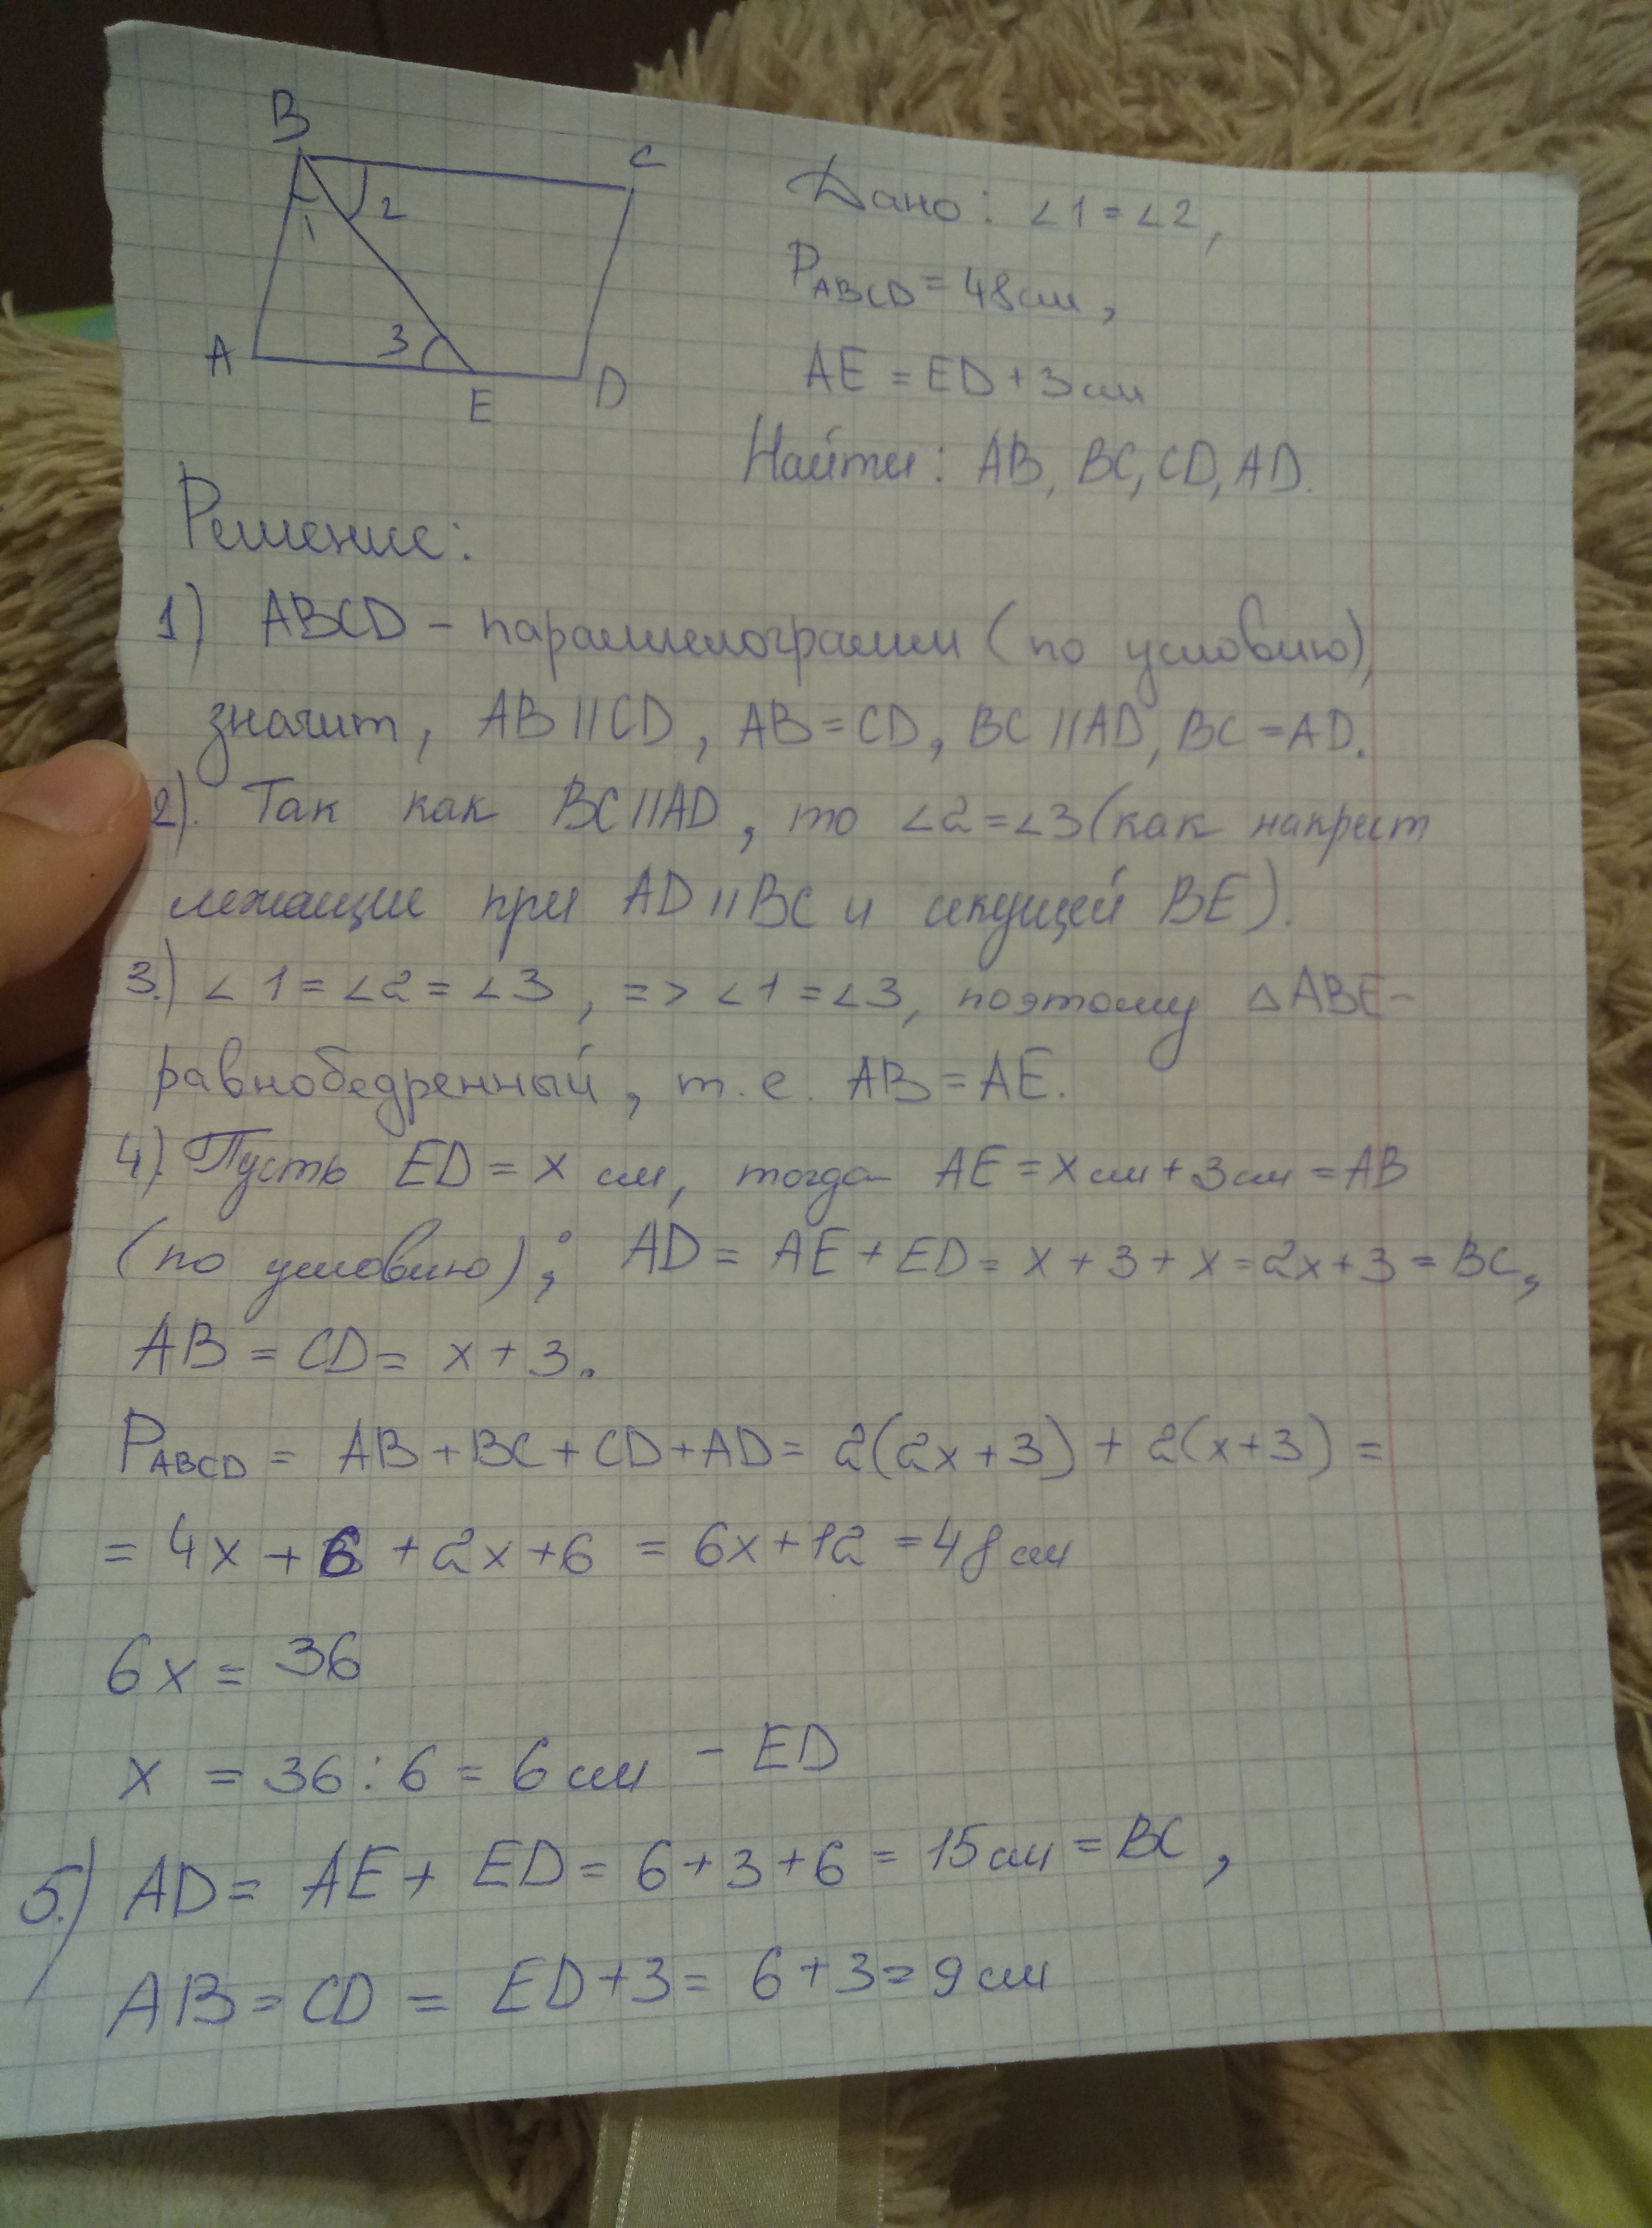 B
C
1
2
A
3
E
D
Дано: ∠1 = ∠2,
P ABCD = 48 см,
AE = ED + 3 см
Найти: AB, BC, CD, AD.
Решение:
1) ABCD – параллелограмм (по условию),
значит, AB || CD, AB = CD, BC || AD, BC = AD.
2). Так как BC || AD, то ∠2 = ∠3 (как накрест
лежащие при AD || BC и секущей BE).
3.) ∠1 = ∠2 = ∠3, => ∠1 = ∠3, поэтому △ABE –
равнобедренный, т.е. AB = AE.
4). Пусть ED = x см, тогда AE = x см + 3 см = AB
(по условию); AD = AE + ED = x + 3 + x = 2x + 3 = BC,
AB = CD = x + 3.
P ABCD = AB + BC + CD + AD = 2(2x + 3) + 2(x + 3) =
= 4x + 6 + 2x + 6 = 6x + 12 = 48 см
6x = 36
x = 36 : 6 = 6 см – ED
5.) AD = AE + ED = 6 + 3 + 6 = 15 см = BC,
AB = CD = ED + 3 = 6 + 3 = 9 см